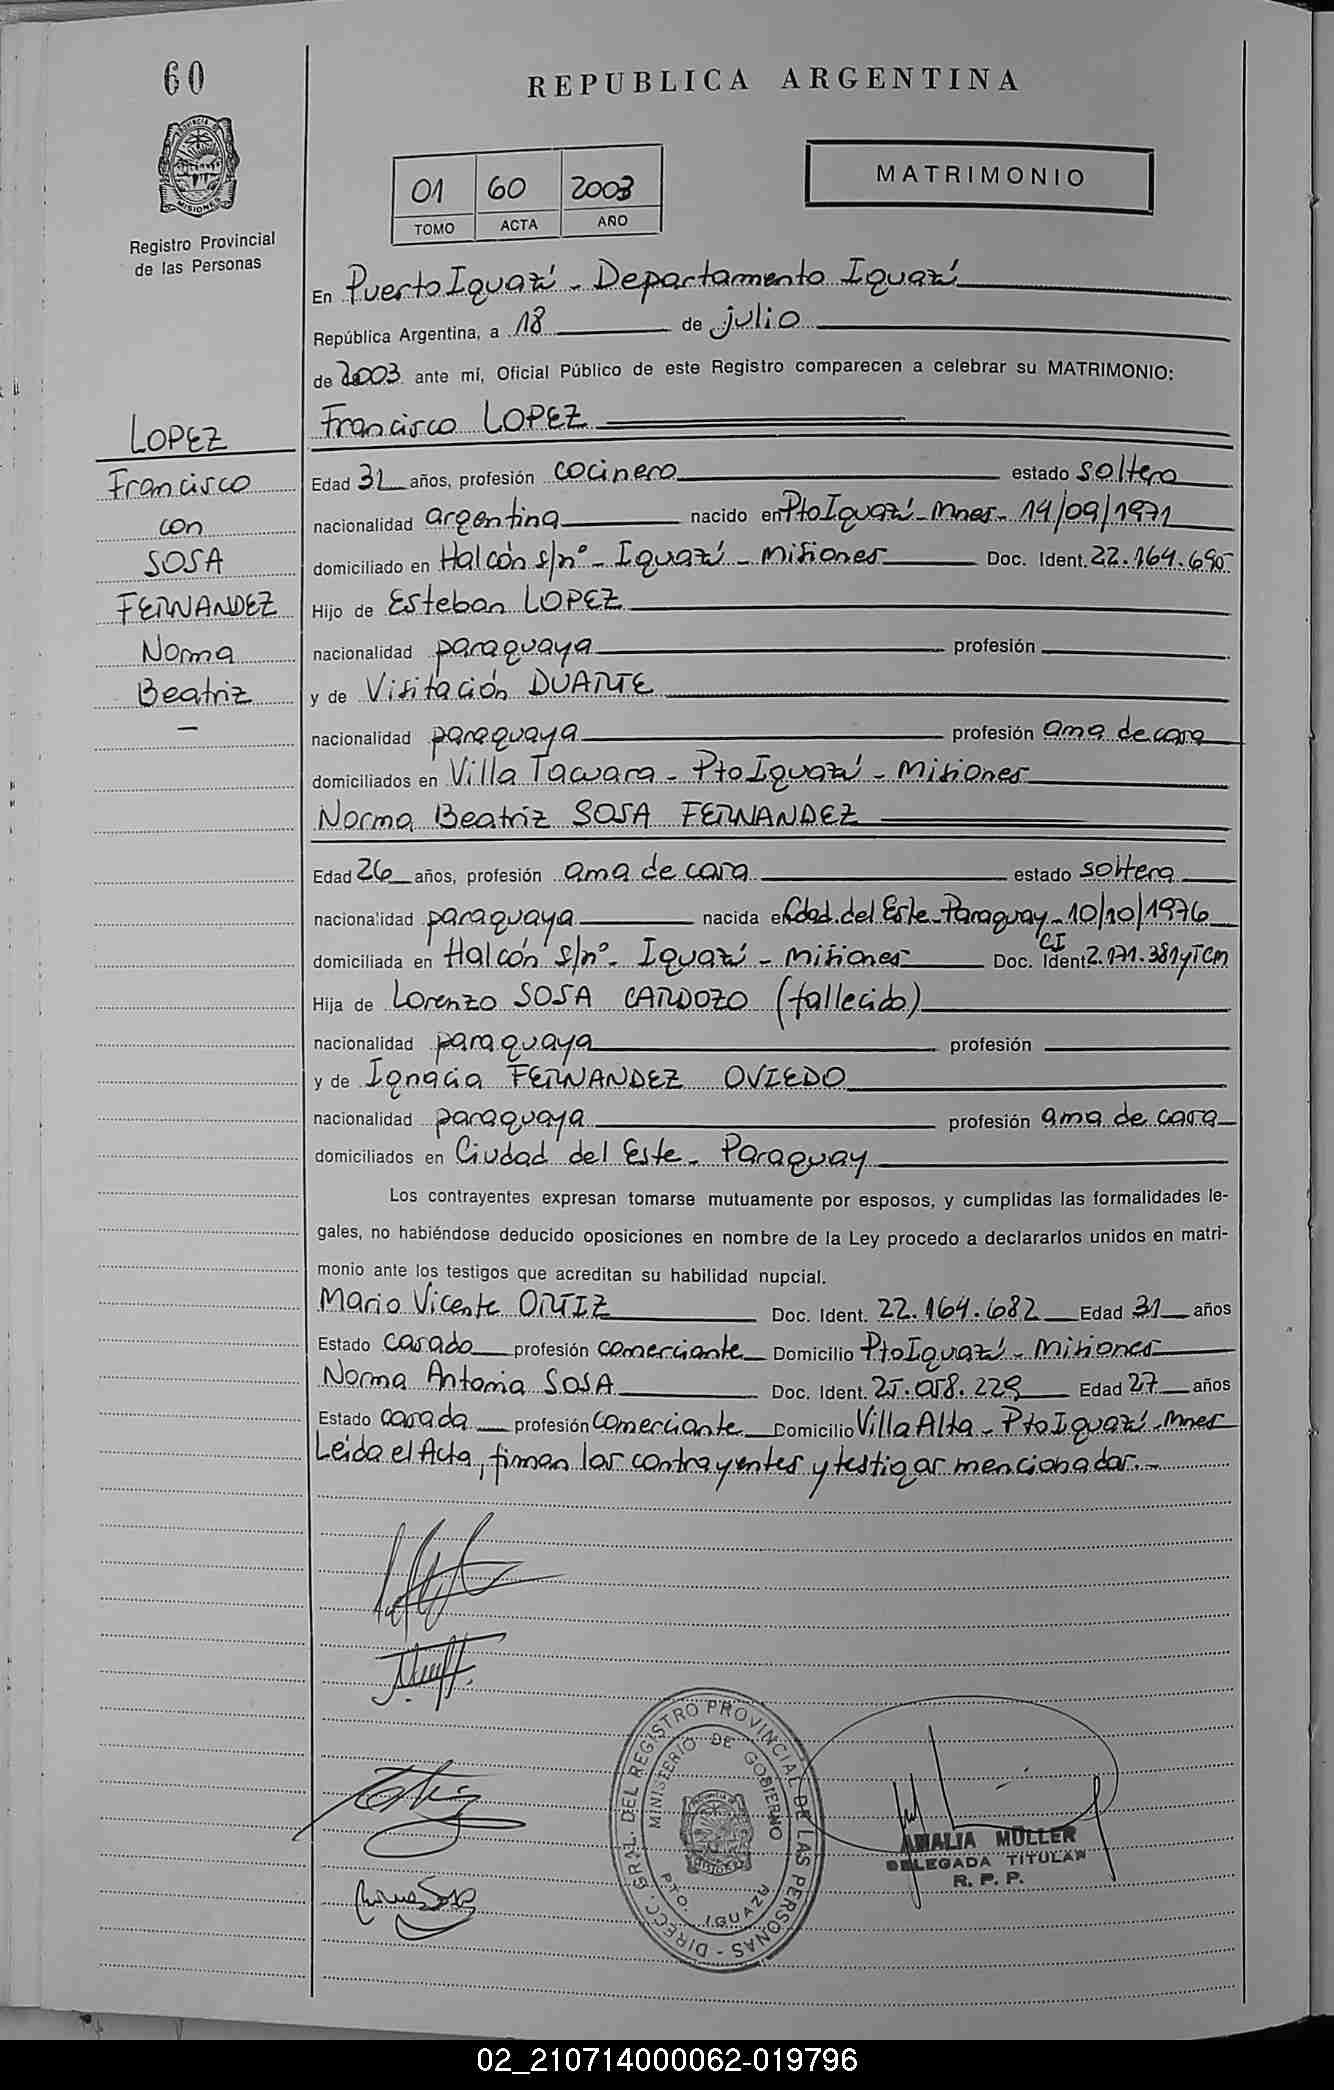 60
REPUBLICA ARGENTINA
PROVINCIA DE
MISIONES
Registro Provincial
de las Personas
01 60 2003
TOMO ACTA AÑO
MATRIMONIO
En Puerto Iguazú - Departamento Iguazú
República Argentina, a 18 de julio
de 2003 ante mí, Oficial Público de este Registro comparecen a celebrar su MATRIMONIO:
LOPEZ
Francisco
con
SOSA
FERNANDEZ
Norma
Beatriz
—
Francisco LOPEZ
Edad 31 años, profesión cocinero estado soltero
nacionalidad argentina nacido en Pto Iguazú - Mnes - 14/09/1971
domiciliado en Halcón s/nº - Iguazú - Misiones Doc. Ident. 22.164.690
Hijo de Esteban LOPEZ
nacionalidad paraguaya profesión
y de Visitación DUARTE
nacionalidad paraguaya profesión ama de casa
domiciliados en Villa Tacuara - Pto Iguazú - Misiones
Norma Beatriz SOSA FERNANDEZ
Edad 26 años, profesión ama de casa estado soltera
nacionalidad paraguaya nacida en Cdad. del Este - Paraguay - 10/10/1976
domiciliada en Halcón s/nº - Iguazú - Misiones Doc. Ident. CI 2.171.381 y TCM
Hija de Lorenzo SOSA CARDOZO (fallecido)
nacionalidad paraguaya profesión
y de Ignacia FERNANDEZ OVIEDO
nacionalidad paraguaya profesión ama de casa
domiciliados en Ciudad del Este - Paraguay
Los contrayentes expresan tomarse mutuamente por esposos, y cumplidas las formalidades le-
gales, no habiéndose deducido oposiciones en nombre de la Ley procedo a declararlos unidos en matri-
monio ante los testigos que acreditan su habilidad nupcial.
Mario Vicente ORTIZ Doc. Ident. 22.164.682 Edad 31 años
Estado casado profesión comerciante Domicilio Pto Iguazú - Misiones
Norma Antonia SOSA Doc. Ident. 25.058.229 Edad 27 años
Estado casada profesión comerciante Domicilio Villa Alta - Pto Iguazú - Mnes
Leída el Acta, firman los contrayentes y testigos mencionados.-
DIRECC. GRAL. DEL REGISTRO PROVINCIAL DE LAS PERSONAS -
MINISTERIO DE GOBIERNO
PTO. IGUAZU
AMALIA MÜLLER
DELEGADA TITULAR
R. P. P.
02_210714000062-019796